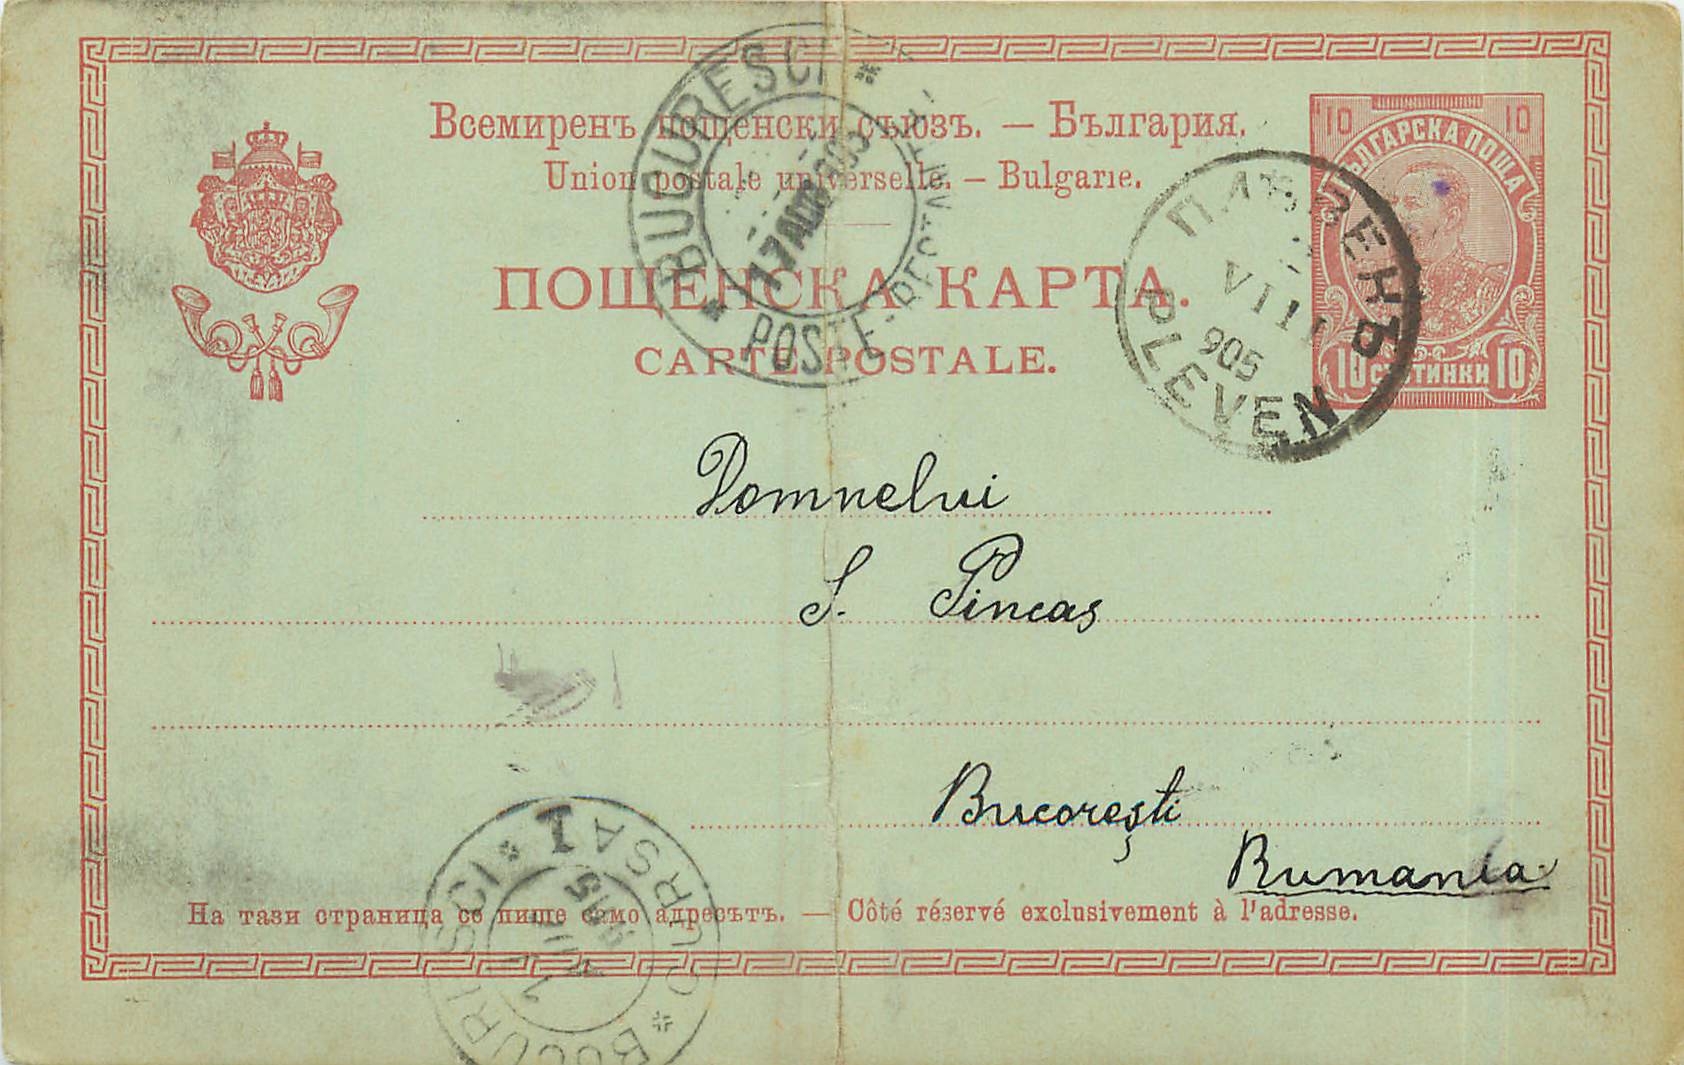 Всемиренъ пощенски съюзъ. — България.
Union postale universelle. — Bulgarie.
ПОЩЕНСКА КАРТА.
CARTE POSTALE.
10 10
БЪЛГАРСКА ПОЩА
10 СТОТИНКИ 10
BUCURESCI
17 AUG 905
POSTE-RESTANTE
ПЛѢВЕНЪ
VIII
905
PLEVEN
Domnelui
S. Pincas
Bucorești
Rumania
На тази страница се пише само адресътъ. — Côté réservé exclusivement à l'adresse.
1